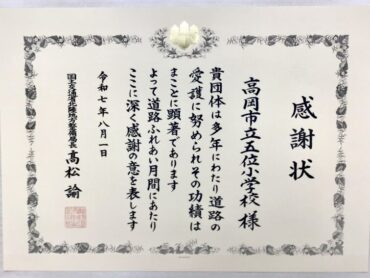 感謝状
高岡市立五位小学校 様
貴団体は多年にわたり道路の
愛護に努められその功績は
まことに顕著であります
よって道路ふれあい月間にあたり
ここに深く感謝の意を表します
令和七年八月一日
国土交通省北陸地方整備局長 髙松 諭